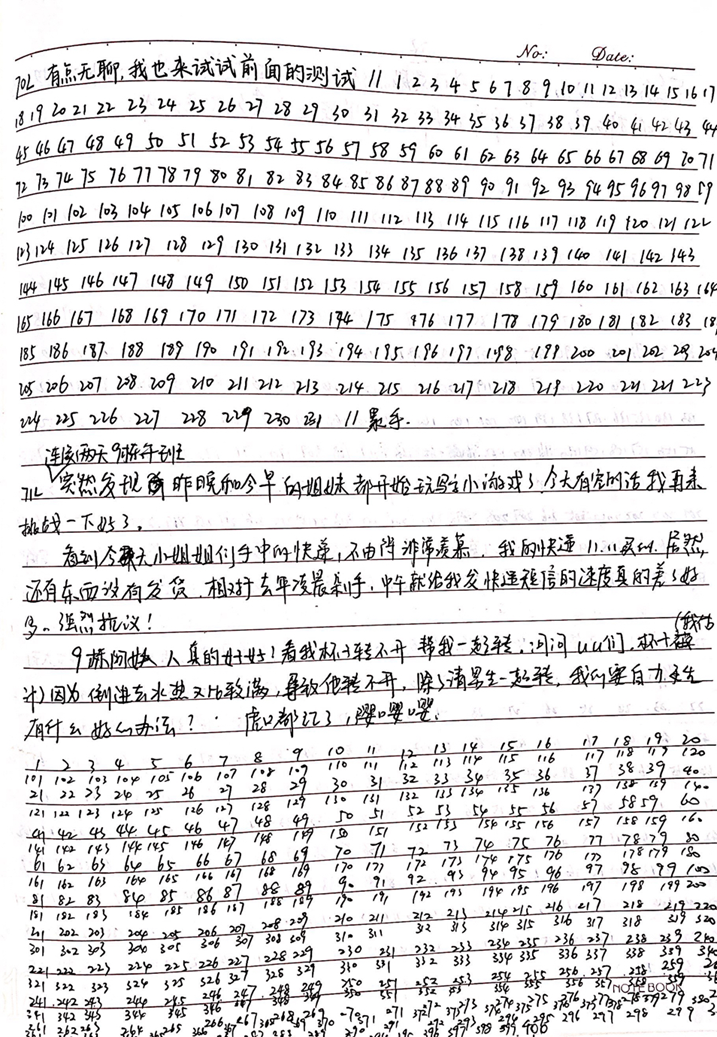 No: Date:
70L 有点无聊,我也来试试前面的测试 // 1 2 3 4 5 6 7 8 9 10 11 12 13 14 15 16 17
18 19 20 21 22 23 24 25 26 27 28 29 30 31 32 33 34 35 36 37 38 39 40 41 42 43 44
45 46 47 48 49 50 51 52 53 54 55 56 57 58 59 60 61 62 63 64 65 66 67 68 69 70 71
72 73 74 75 76 77 78 79 80 81 82 83 84 85 86 87 88 89 90 91 92 93 94 95 96 97 98 99
100 101 102 103 104 105 106 107 108 109 110 111 112 113 114 115 116 117 118 119 120 121 122
123 124 125 126 127 128 129 130 131 132 133 134 135 136 137 138 139 140 141 142 143
144 145 146 147 148 149 150 151 152 153 154 155 156 157 158 159 160 161 162 163 164
165 166 167 168 169 170 171 172 173 174 175 176 177 178 179 180 181 182 183 18
185 186 187 188 189 190 191 192 193 194 195 196 197 198 199 200 201 202 203 204
205 206 207 208 209 210 211 212 213 214 215 216 217 218 219 220 221 221 223
224 225 226 227 228 229 230 231 // 累手.
连续两天9栋午班
71L 突然发现 昨晚和今早的姐妹都开始玩写小游戏了.今天有空的话我再来
挑战一下好了。
看到今天小姐姐们手中的快递,不由得非常羡慕. 我的快递11.11买的.居然
还有东西没有发货 相对于去年凌晨剁手,中午就给我发快递短信的速度真的差了好
多.强烈抗议!
9栋阿姨人真的好好!看我杯子转不开 帮我一起转.问问uu们,杯子
(我估
计)因为倒进去水热又比较满,导致他转不开,除了请男生一起转,我们要自力更生
有什么好的办法? 虎口都红了,嘤嘤嘤.
1 2 3 4 5 6 7 8 9 10 11 12 13 14 15 16 17 18 19 20
101 102 103 104 105 106 107 108 109 110 111 112 113 114 115 116 117 118 119 120
21 22 23 24 25 26 27 28 29 30 31 32 33 34 35 36 37 38 39 40
121 122 123 124 125 126 127 128 129 130 131 132 133 134 135 136 137 138 139 140
41 42 43 44 45 46 47 48 49 50 51 52 53 54 55 56 57 58 59 60
141 142 143 144 145 146 147 148 149 150 151 152 153 154 155 156 157 158 159 160
61 62 63 64 65 66 67 68 69 70 71 72 73 74 75 76 77 78 79 80
161 162 163 164 165 166 167 168 169 170 171 172 173 174 175 176 177 178 179 180
81 82 83 84 85 86 87 88 89 90 91 92 93 94 95 96 97 98 99 100
181 182 183 184 185 186 187 188 189 190 191 192 193 194 195 196 197 198 199 200
201 202 203 204 205 206 207 208 209 210 211 212 213 214 215 216 217 218 219 220
301 302 303 304 305 306 307 308 309 310 311 312 313 314 315 316 317 318 319 320
221 222 223 224 225 226 227 228 229 230 231 232 233 234 235 236 237 238 239 240
321 322 323 324 325 326 327 328 329 330 331 332 333 334 335 336 337 338 339 340
241 242 243 244 245 246 247 248 249 250 251 252 253 254 255 256 257 258 259
NOTEBOOK